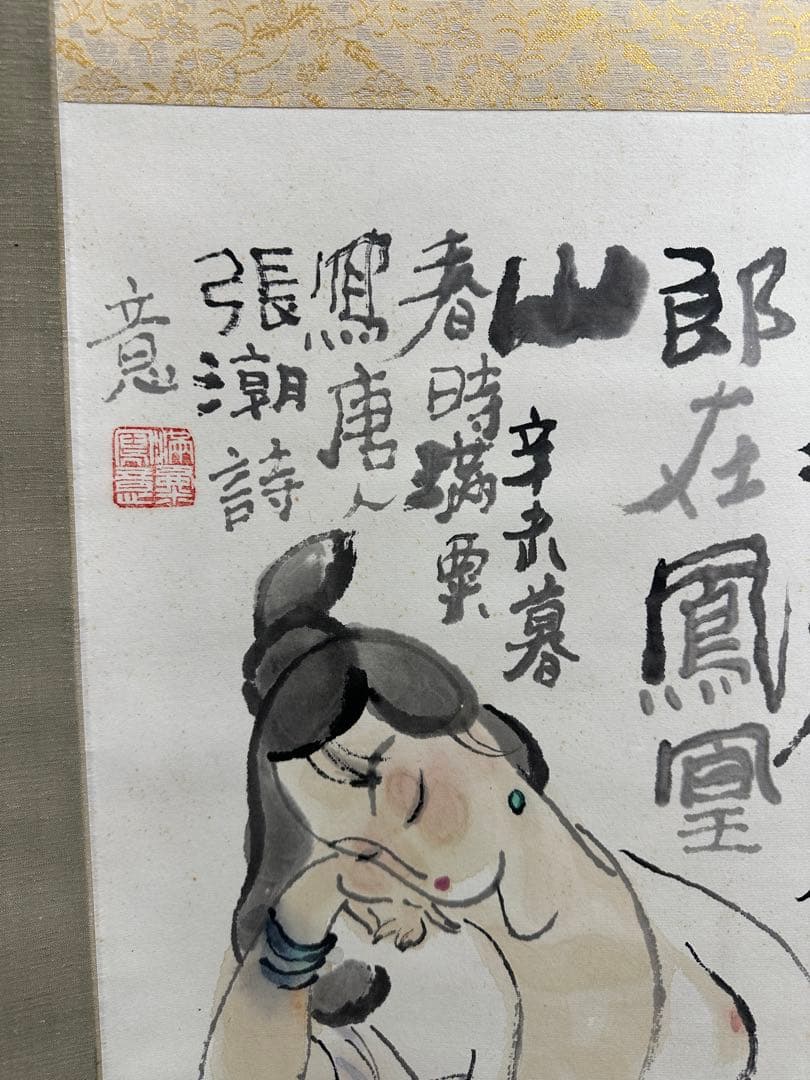 郎在鳳凰
山 辛未暮
春時滿粟
寫唐人
張潮詩
意